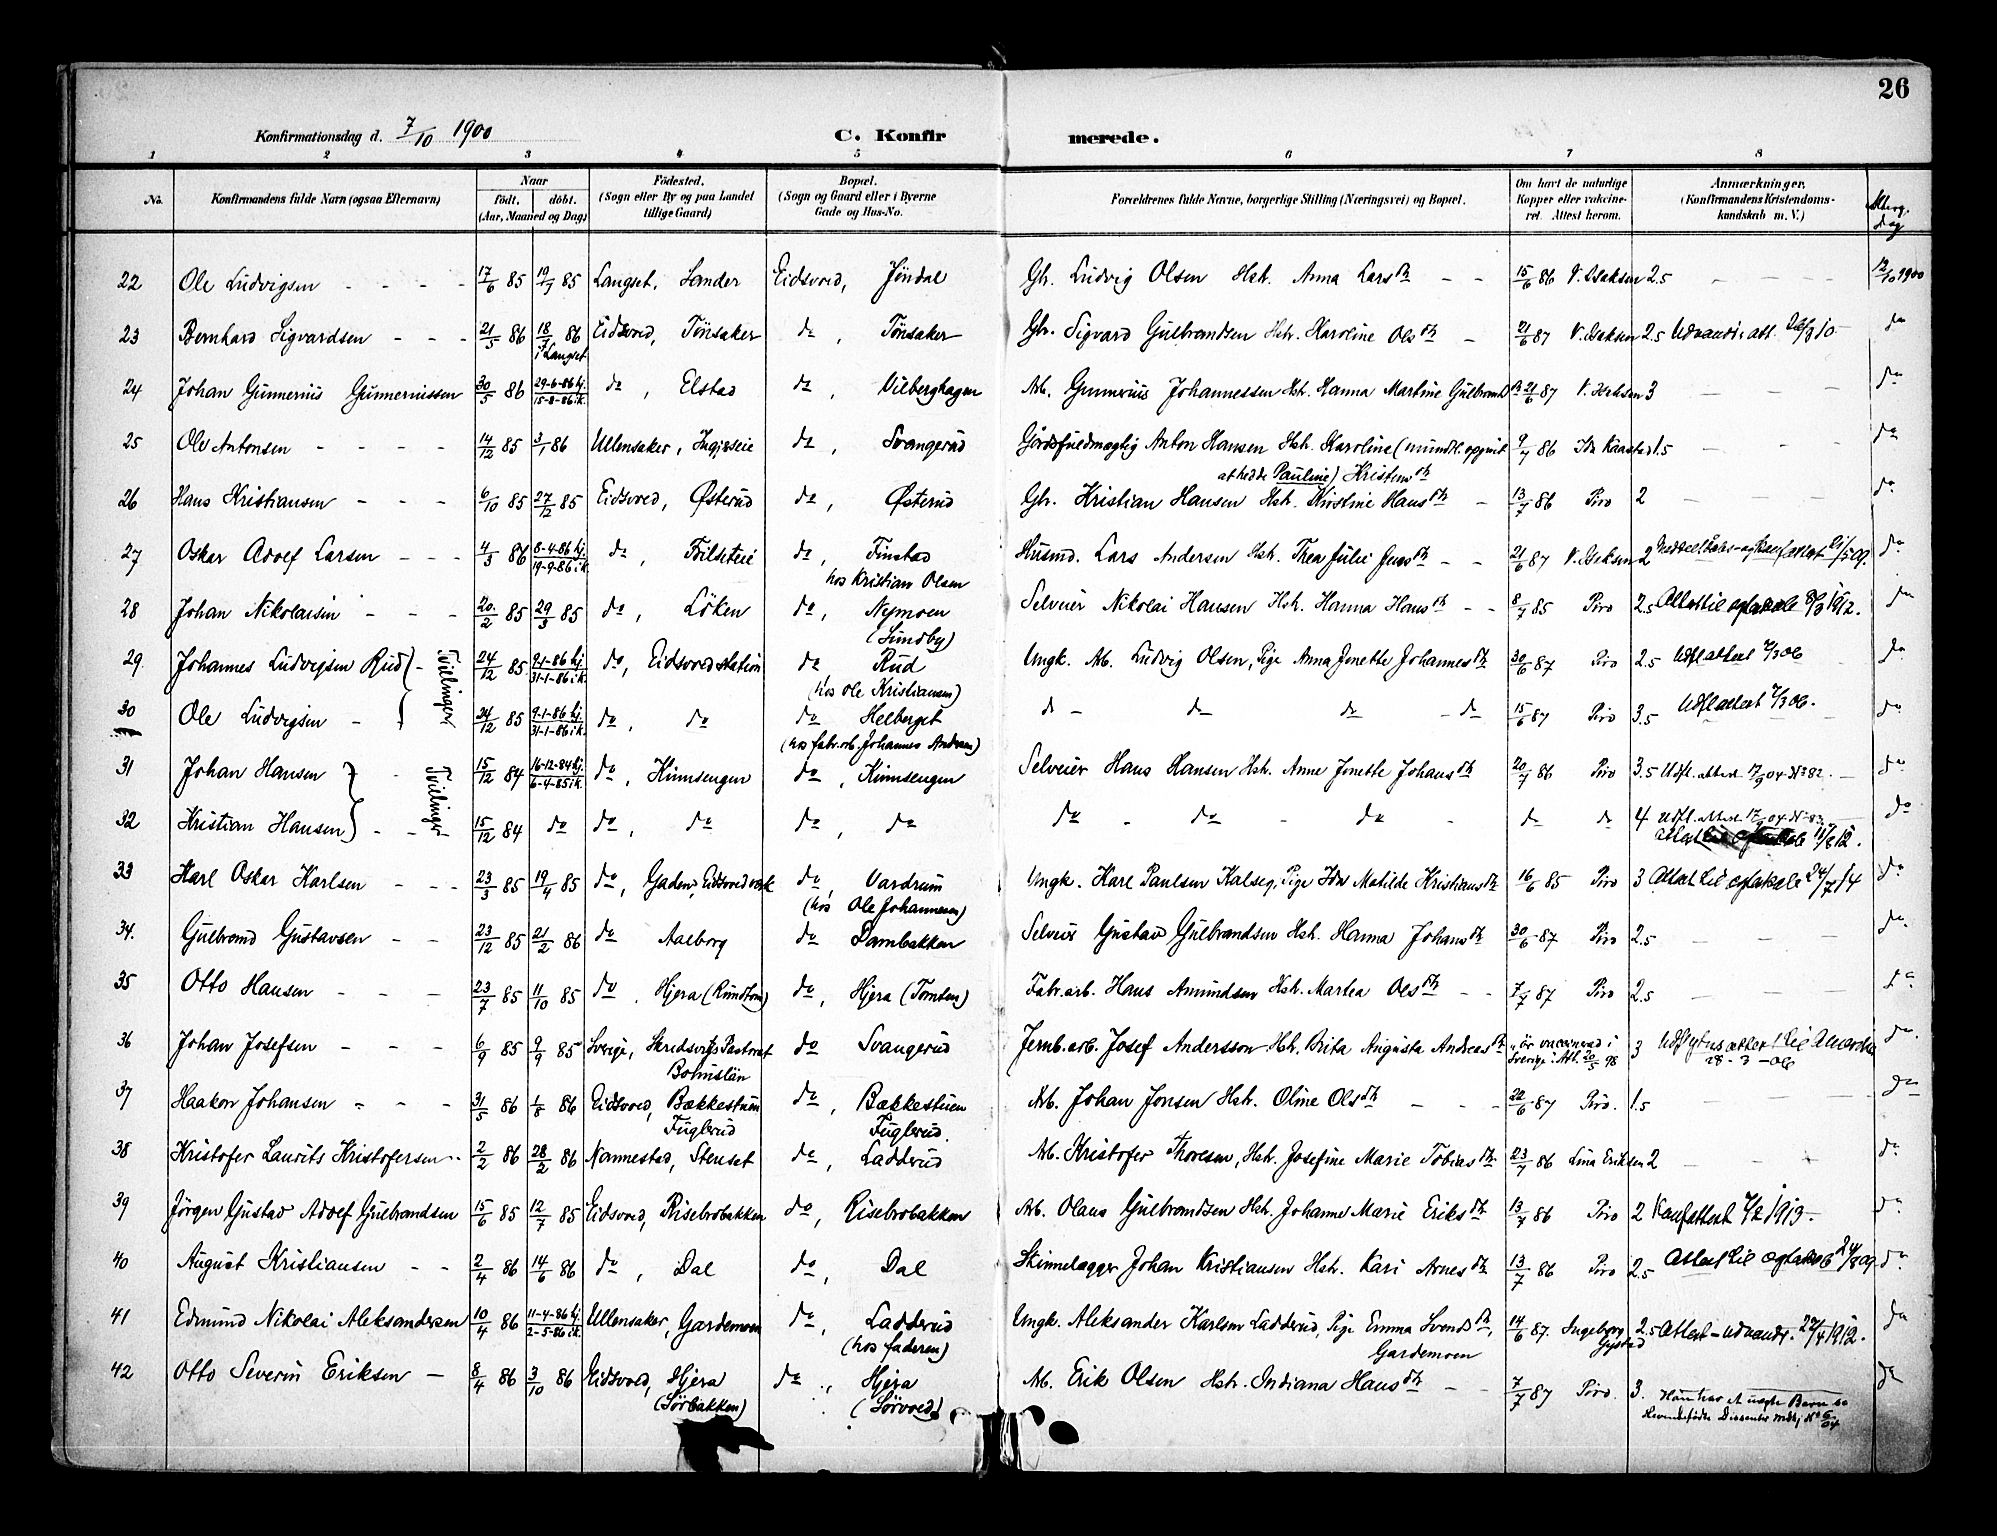 26
Konfirmationsdag d. 7/10 1900
C. Konfirmerede.
1 2 3 4 5 6 7 8
No. Konfirmandens fulde Navn (ogsaa Efternavn) Naar født, døbt. (Aar, Maaned og Dag) Fødested. (Sogn eller By og paa Landet tillige Gaard) Bopæl. (Sogn og Gaard eller i Byerne Gade og Hus-No. Forældrenes fulde Navne, borgerlige Stilling (Næringsvei) og Bopæl. Om havt de naturlige Kopper eller vakcineret. Attest herom. Anmærkninger. (Konfirmandens Kristendomskundskab m. V.)
22 Ole Ludvigsen - - - - 17/6 85 19/7 85 Langset, Sander Eidsvold, Jöndal Gbr. Ludvig Olsen Hstr. Anna Larsdtr. - - 15/6 86 V. Isaksen 2.5 12/10 1900
23 Bernhard Sigvardsen - - - 21/5 86 18/7 86 i Langset Eidsvold, Tönsaker do, Tönsaker Gbr. Sigvard Gulbrandsen Hstr. Karoline Olsdtr. - 21/6 87 V. Isaksen 2.5 do
24 Johan Gunnerius Gunneriussen 30/5 86 29-6-86 hj. 15-8-86 i k. do, Elstad do, Vilberghagen Arb. Gunnerius Johannessen Hstr. Hanna Martine Gulbrandsdtr. 21/6 87 V. Isaksen 3 do
25 Ole Antonsen - - - - 14/12 85 3/1 86 Ullensaker, do, Svangerud Gårdsfuldmægtig Anton Hansen Hstr. Karoline (mundtl. opgivet at hedde Pauline) Kristensdtr. 9/7 86 Ida Kaasta 1.5 do
26 Hans Kristiansen - - - 6/10 85 27/12 85 Eidsvold, Østerud do, Østerud Gbr. Kristian Hansen Hstr. Kirstine Hansdtr. - 13/7 86 Piro 2 do
27 Oskar Adolf Larsen - - - 4/3 86 8-4-86 hj. 19-9-86 i k. do, do, Finstad hos Kristian Olsen Husmd. Lars Andersen Hstr. Thea Julie Jensdtr. - - 21/6 87 V. Isaksen 2 do
28 Johan Nikolaisen - - - 20/2 85 29/3 85 do, Löken do, Nymoen (Sundby) Selveier Nikolai Hansen Hstr. Hanna Hansdtr. - - 8/7 85 Piro 2.5 do
29. Johannes Ludvigsen Rud Tvillinger 24/12 85 9-1-86 hj. 31-1-86 i k. do, Eidsvold station do Rud (hos Ole Kristiansen) Ungk. Arb. Ludvig Olsen, Pige Anna Jonette Johannesdtr. 30/6 87 Piro 2.5 Udfl.attest 7/3 06 do
30 Ole Ludvigsen - 24/12 85 9-1-86 hj. 31-1-86 i k. do, do do Helberget (hos fabr.arb. Johannes Andersen) do - do do - do 15/6 87 Piro 3.5 Udfl.attest 7/3 06. do
31 Johan Hansen Tvillinger 15/12 84 16-12-84 hj. 6-4-85 i k. do, Kimsengen do, Kimsengen Selveier Hans Hansen Hstr. Anne Jonette Johansdtr. 20/7 86 Piro 3.5 Udfl. attest 17/9 04 No 82. do
32 Kristian Hansen - 15/12 84 do do, do do, do do - do - do - do do 4 Udfl. attest 17/9 04 No 83. do
33 Karl Oskar Karlsen - - - 23/3 85 19/4 85 do, Gaden, Eidsvold værk do, Vardrum (hos Ole Johannesen) Ungk. Karl Paulsen Kalseg, Pige Ida Matilde Kristiansdtr. 16/6 85 Piro 3 Attest til 24/7 14 do
34. Gulbrand Gustavsen - - 23/12 85 21/2 86 do Aalborg do Dambakken Selveier Gustav Gulbrandsen Hstr. Hanna Johansdtr. 30/6 87 Piro 2.5 do
35 Otto Hansen - - - 23/7 85 11/10 85 do, Hjera (Rundtom) do, Hjera (Tomten) Fabr.arb. Hans Amundsen Hstr. Martea Olsdtr. - - 7/7 87 Piro 2.5 do
36 Johan Josefsen - - - 6/9 85 9/9 85 Sverige, Skredsviks Pastorat Bohuslän do Svangerud Jernb.arb. Josef Andersson Hstr. Brita Augusta Andreasdtr. är vaccinerad i Sverige i Att. 20/5 98 3 Udflytn.attest til Amerika 28-3-06 do
37 Haakon Johansen - - - 31/5 86 1/8 86 Eidsvold, Bækkestuen Fuglerud do, Bækkestuen Fuglerud. Arb. Johan Jonsen Hstr. Oline Olsdtr. - - - 22/6 87 Piro. 1.5 do
38 Kristofer Laurits Kristofersen 2/2 86 28/2 86 Nannestad, Stenset do, Ladderud Arb. Kristofer Thoresen, Hstr. Josefine Marie Tobiasdtr. 23/7 86 Lina Eriksen 2 do
39 Jörgen Gustav Adolf Gulbrandsen 15/6 85 12/7 85 Eidsvold, Risebrobakken do, Risebrobakken Arb. Olaus Gulbrandsen Hstr. Johanne Marie Eriksdtr. 13/7 86 Piro 2 Konf.attest 7/2 1913. do
40 August Kristiansen - - 2/4 86 14/6 86 do, Dal do, Dal Skinnelægger Johan Kristiansen Hstr. Kari Arnesdtr. 13/7 86 Piro 2.5 Attest til do
41 Edmund Nikolai Aleksandersen 10/4 86 11-4-86 hj. 2-5-86 i k. Ullensaker, Gardemoen do, Ladderud (hos faderen) Ungk. Aleksander Karlsen Ladderud, Pige Emma Svendsdtr., Gardemoen 14/6 87. Ingeborg Gystad 2.5 Attest - udvandr. 27/4 1912. do
42 Otto Severin Eriksen - 8/4 86 3/10 86 Eidsvold, Hjera (Sörbakken) do, Hjera (Sörvold) Arb. Erik Olsen Hstr. Indiana Hansdtr. - - 7/7 87 Piro. 3. do